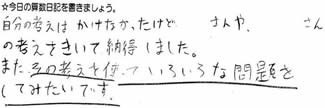 ☆今日の算数日記を書きましょう。
自分の考えは かけなかったけど さんや、 さん
の考えをきいて納得しました。
また、その考えを使っていろいろな問題を
してみたいです。